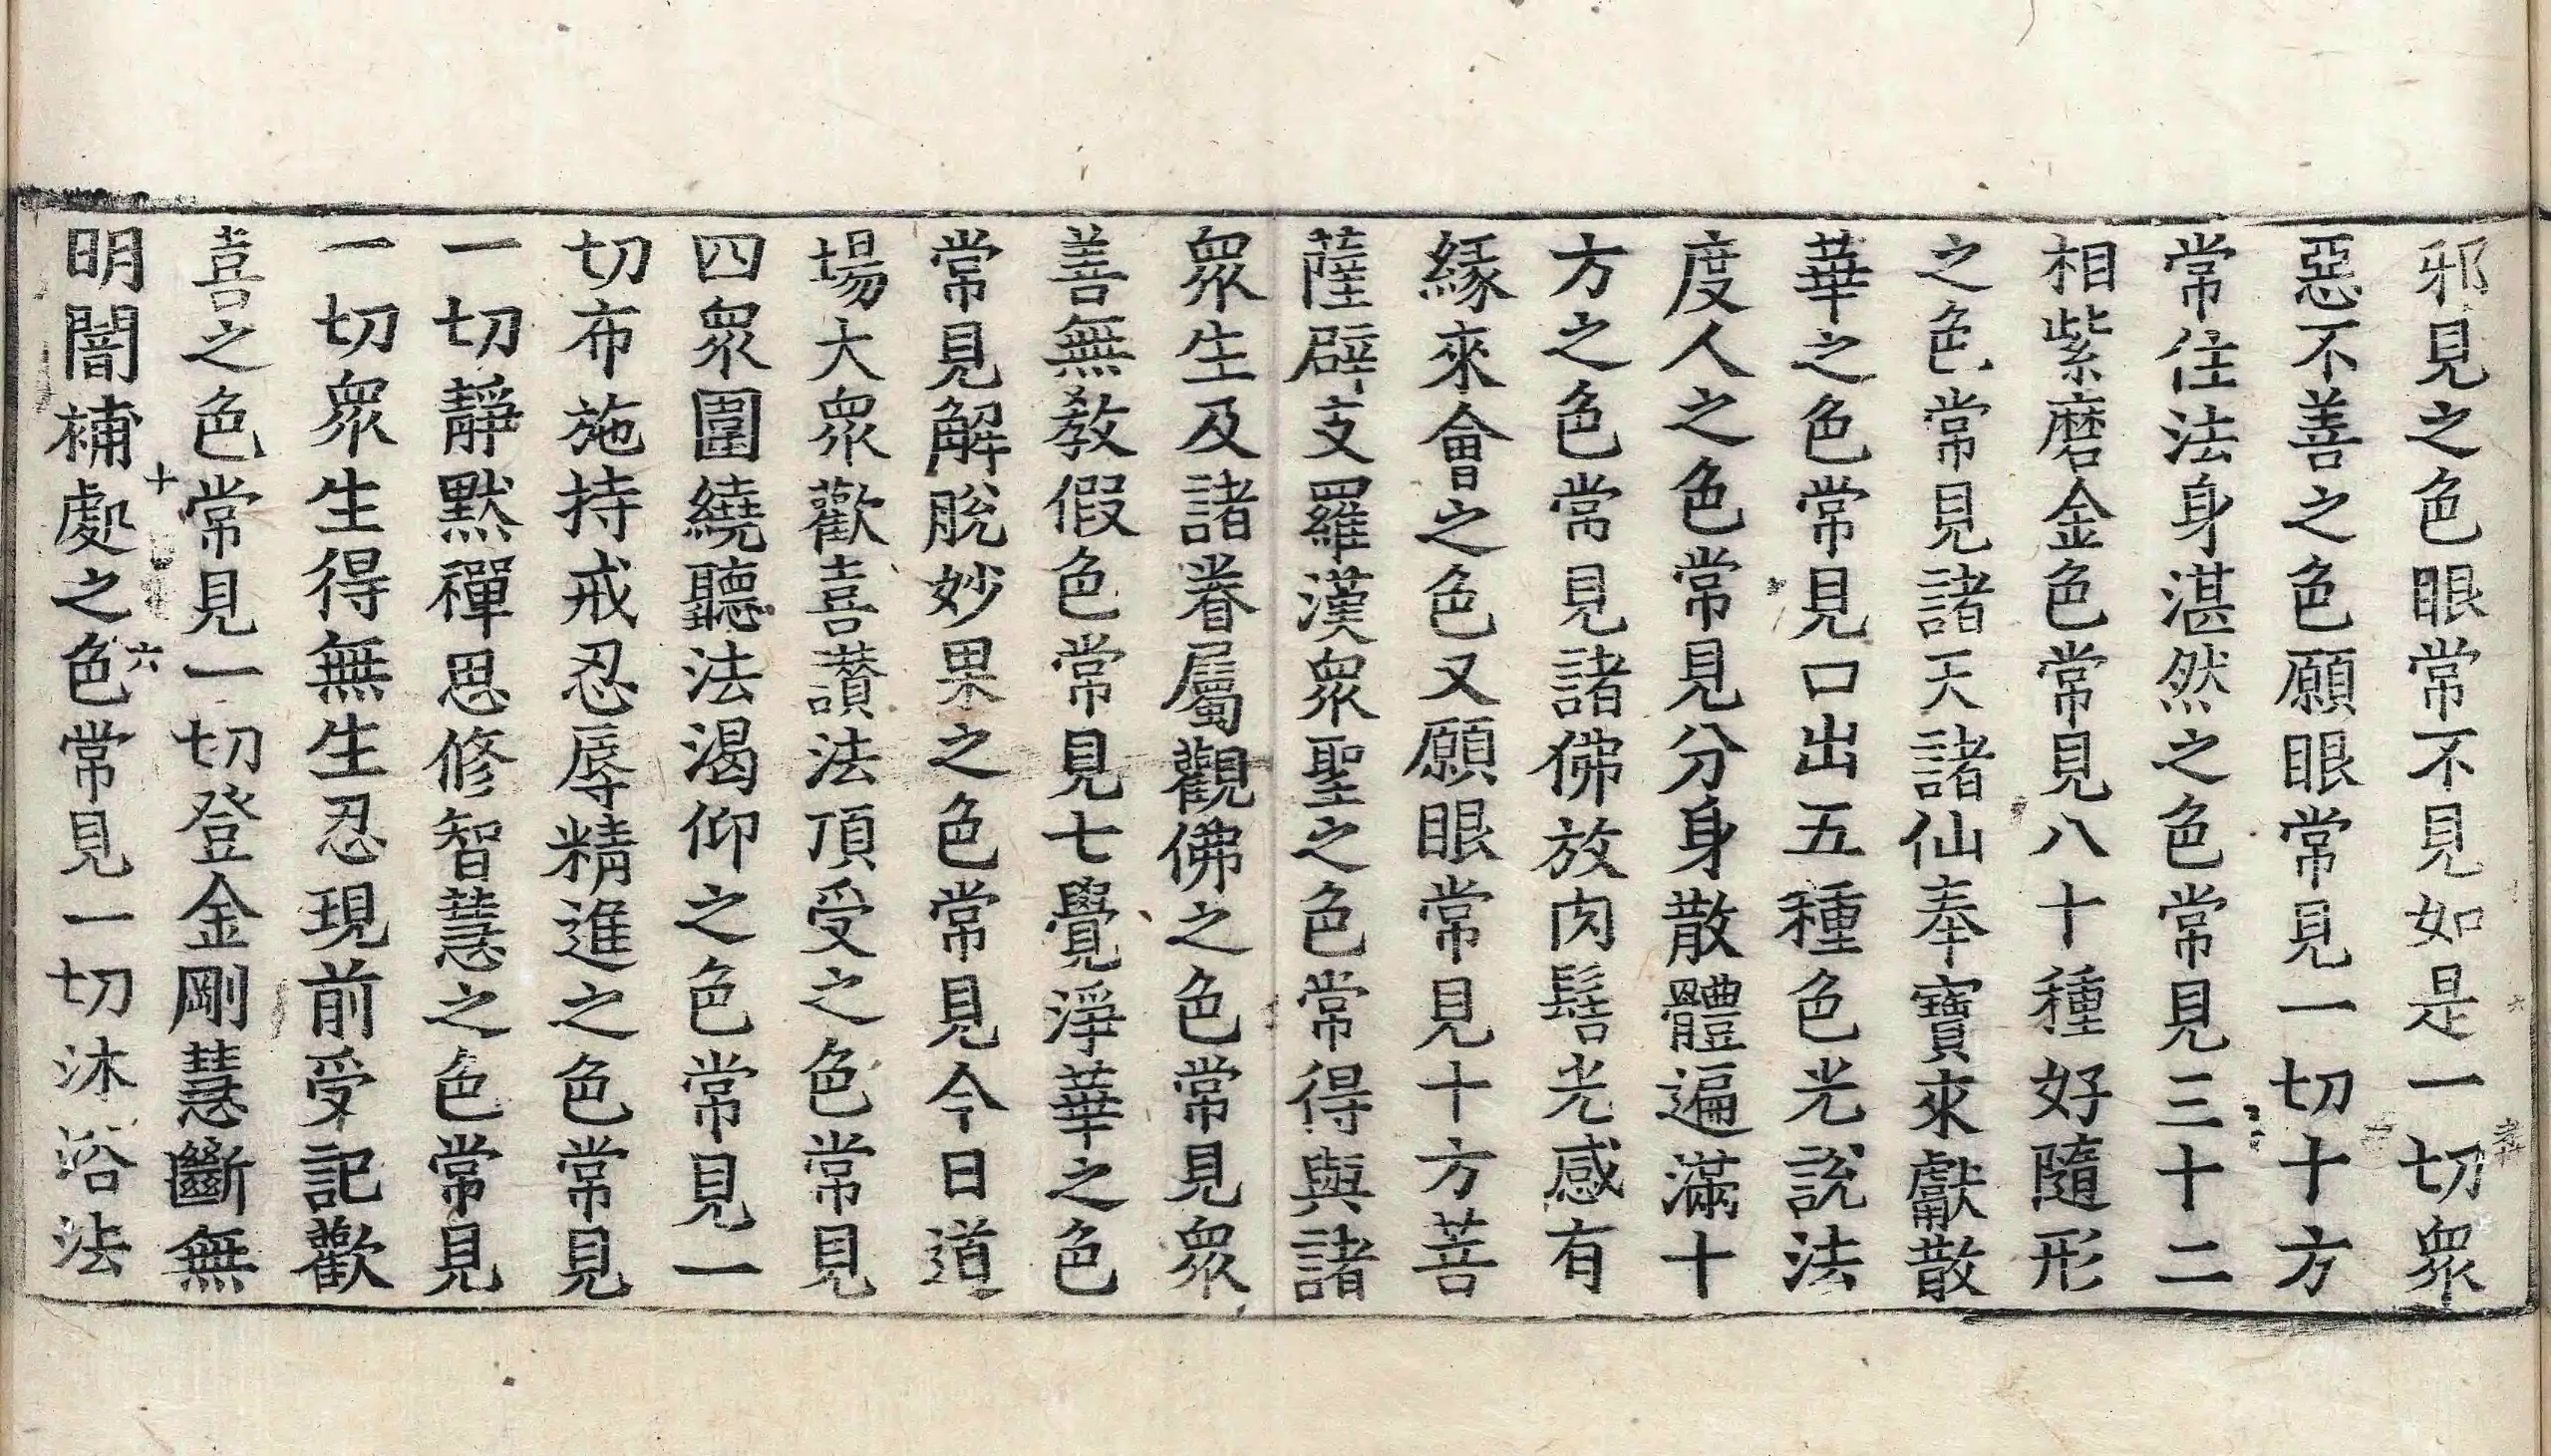 邪見之色眼常不見如是一切衆
惡不善之色願眼常見一切十方
常住法身湛然之色常見三十二
相紫磨金色常見八十種好隨形
之色常見諸天諸仙奉寶來獻散
華之色常見口出五種色光說法
度人之色常見分身散體遍滿十
方之色常見諸佛放肉髻光感有
緣來會之色又願眼常見十方菩
薩辟支羅漢衆聖之色常得與諸
衆生及諸眷屬觀佛之色常見衆
善無敎假色常見七覺淨華之色
常見解脫妙果之色常見今日道
場大衆歡喜讃法頂受之色常見
四衆圍繞聽法渴仰之色常見一
切布施持戒忍辱精進之色常見
一切靜默禪思修智慧之色常見
一切衆生得無生忍現前受記歡
喜之色常見一切登金剛慧斷無
十 六
明闇補處之色常見一切沐浴法